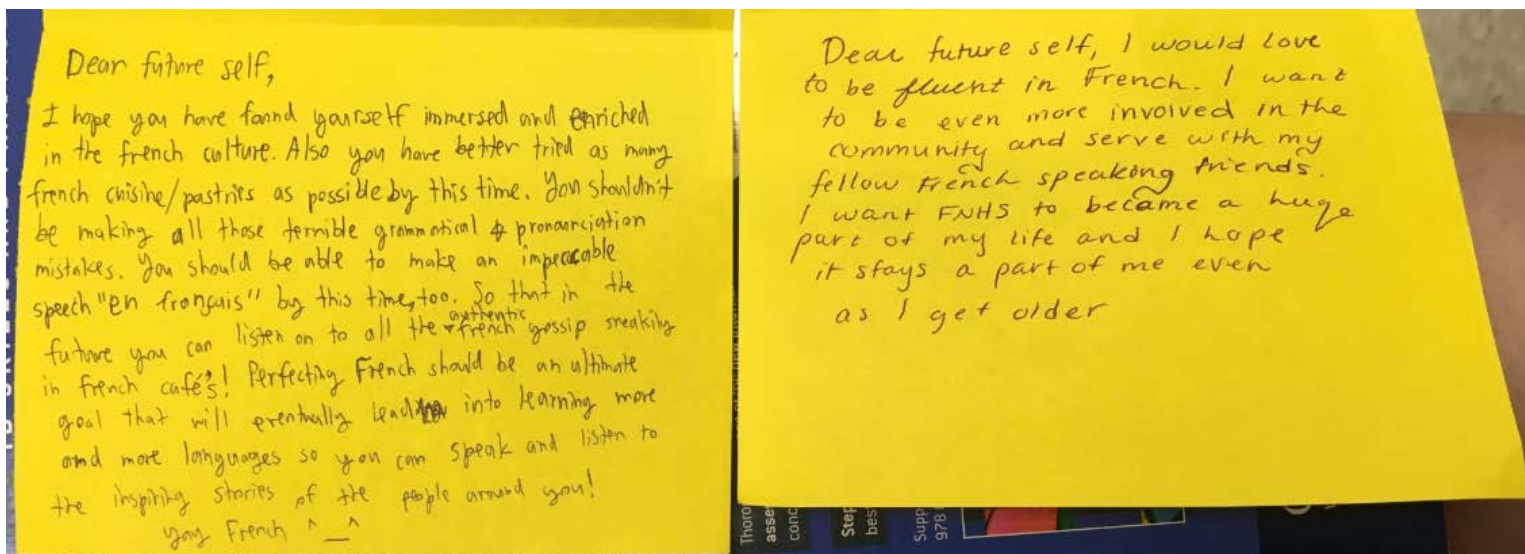 Dear future self,
I hope you have found yourself immersed and enriched
in the french culture. Also you have better tried as many
french cuisine/pastries as possible by this time. You shouldn't
be making all those terrible grammatical & pronunciation
mistakes. You should be able to make an impeccable
speech "en français" by this time, too. So that in the
future you can listen on to all the authentic french gossip sneaking
in french café's! Perfecting French should be an ultimate
goal that will eventually lead into learning more
and more languages so you can speak and listen to
the inspiring stories of the people around you!
yay French ^_^
Dear future self, I would love
to be fluent in French. I want
to be even more involved in the
community and serve with my
fellow French speaking friends.
I want FNHS to became a huge
part of my life and I hope
it stays a part of me even
as I get older
Thoro
asse
conc
Step
bes
Supp
978